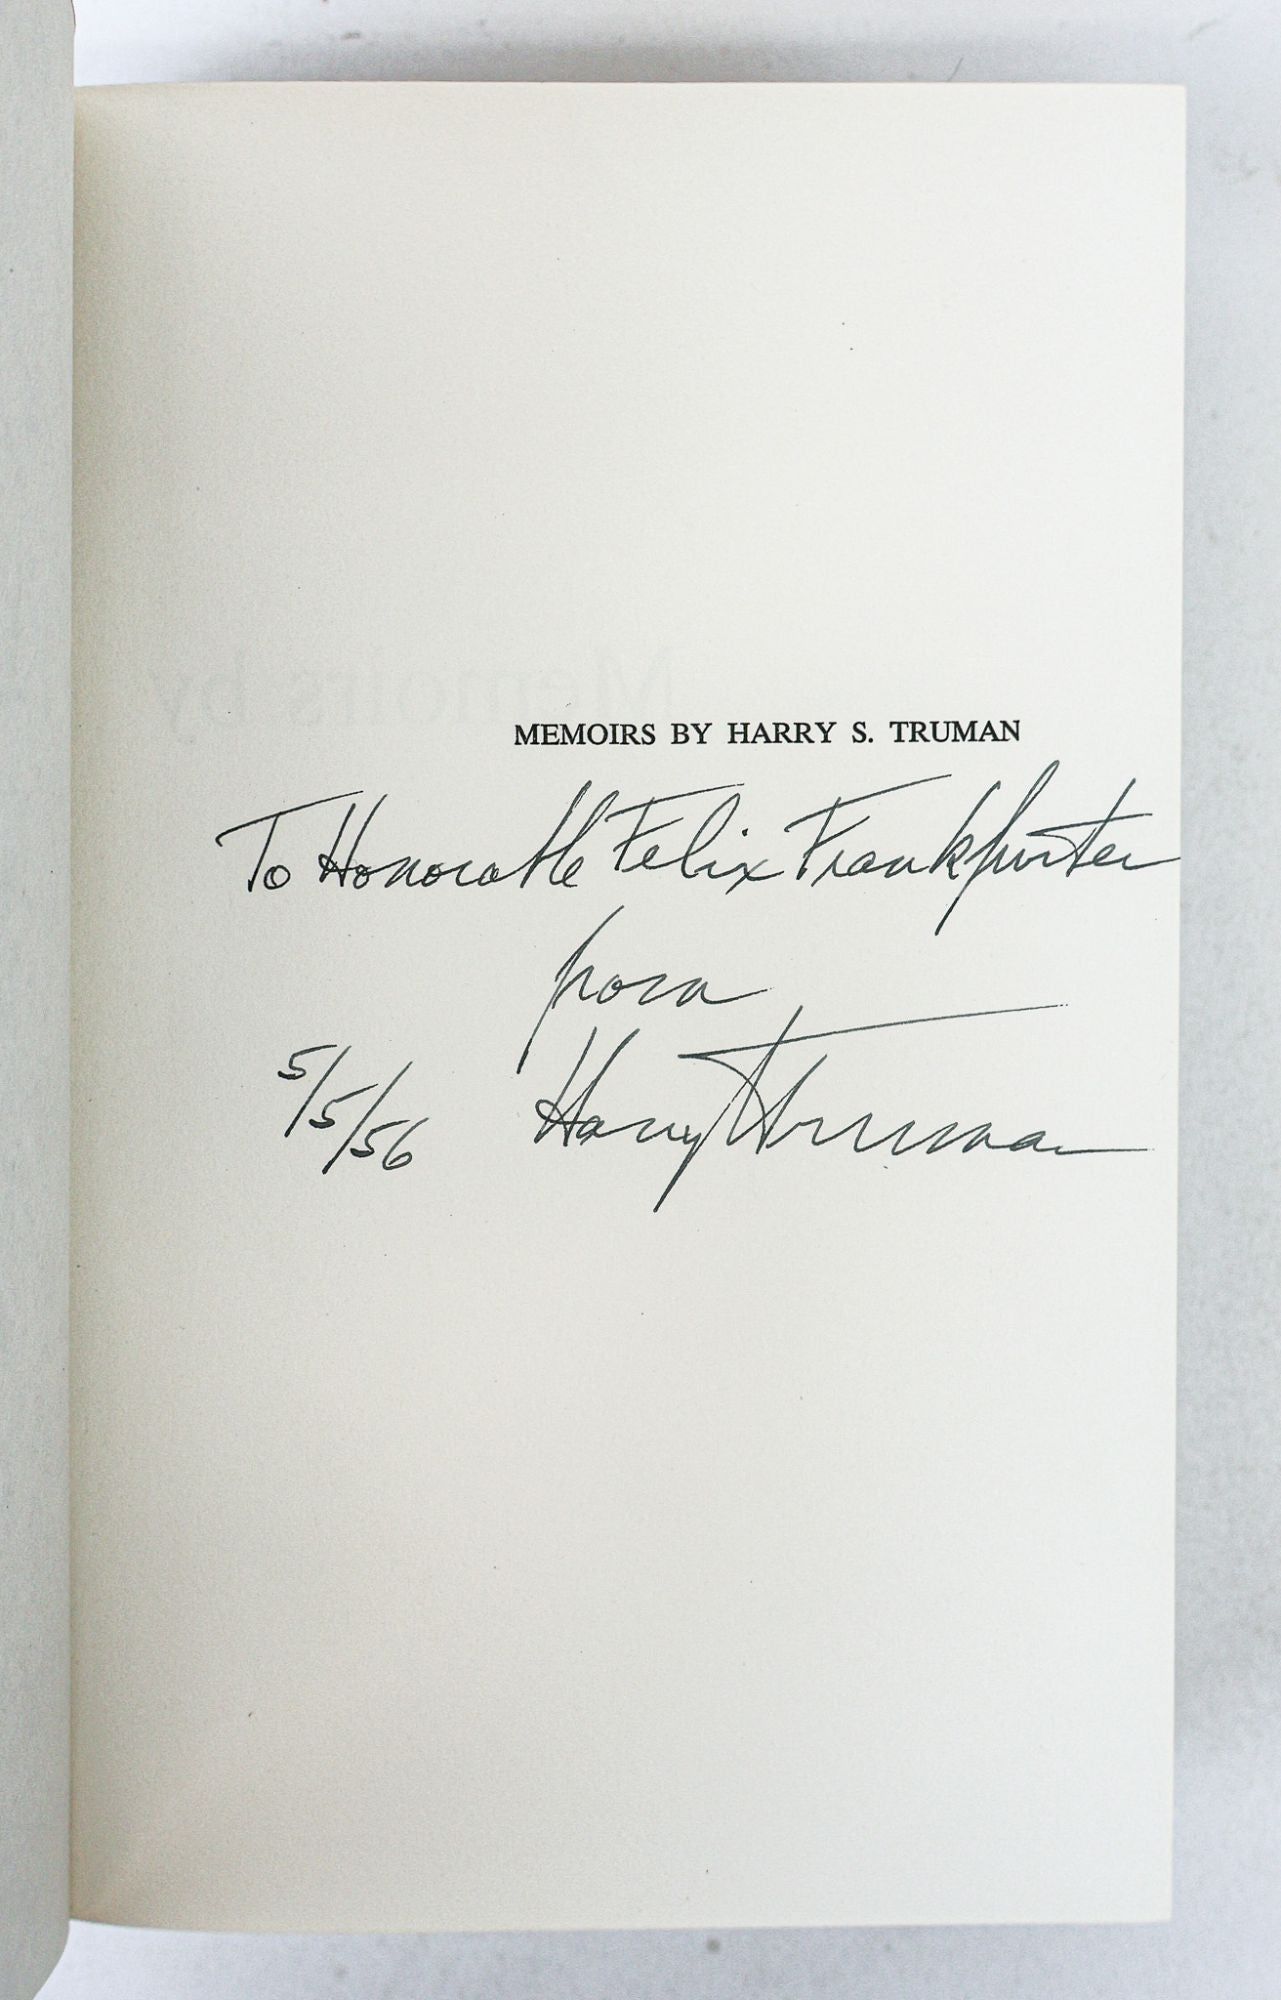 MEMOIRS BY HARRY S. TRUMAN
To Honorable Felix Frankfurter
from
5/5/56 Harry Truman
Memoirs by